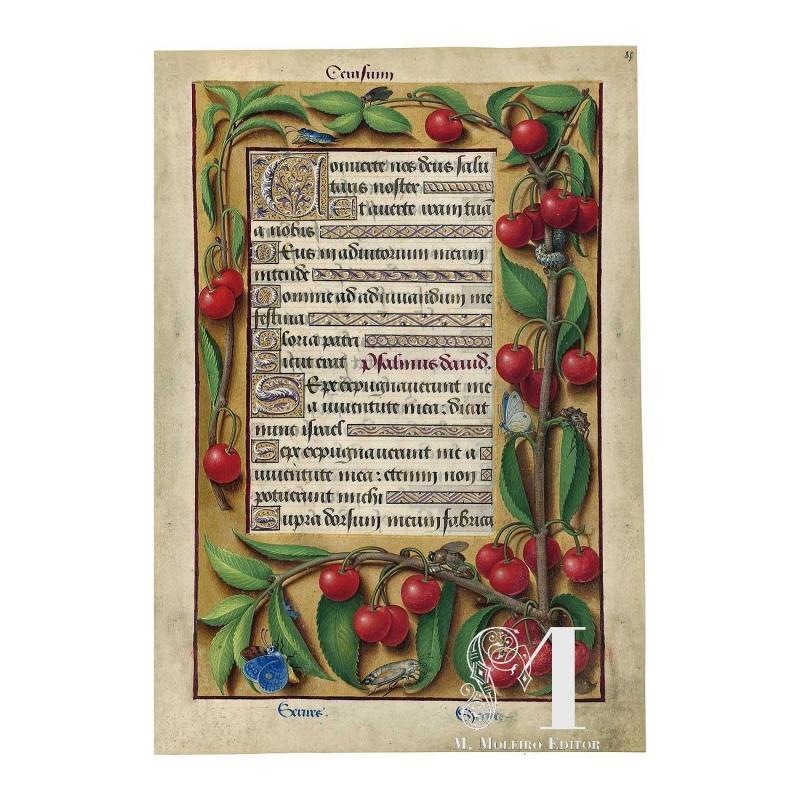 Cerasum
Conuerte nos deus salu
taris noster
Et auerte iram tuã
a nobis
Deus in adiutorium meum
intende
Domine ad adiuuandum me
festina
Gloria patri
Sicut erat Psalmus dauid.
Sepe expugnauerunt me
a iuuentute mea: dicat
nunc israel
Sepe expugnauerunt me a
iuuentute mea: etenim non
potuerunt michi
Supra dorsum meum fabrica
M
M. MOLEIRO EDITOR